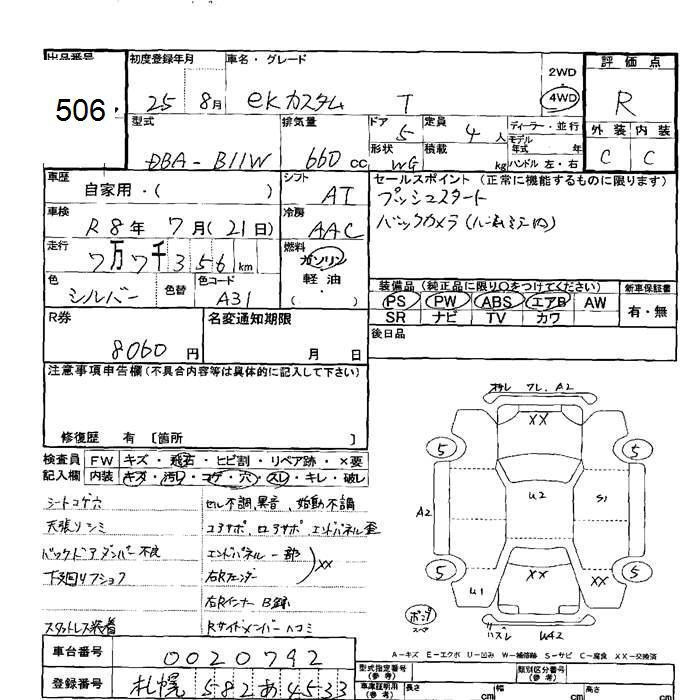 出品番号
506
初度登録年月
25年 8月
車名・グレード
eKカスタム T
2WD
4WD
評価点
R
外装 内装
C C
型式
DBA-B11W
排気量
660 CC
ドア 5
形状 WG
定員 4人
積載 kg
ディーラー・並行
モデル年式 年
ハンドル 左・右
車歴
自家用・( )
シフト
AT
セールスポイント(正常に機能するものに限ります)
プッシュスタート
バックカメラ(ルームミラー内)
車検
R8年 7月(21日)
冷房
AAC
走行
7万7千356km
燃料
ガソリン
軽油
( )
色
シルバー
色替
色コード
A31
装備品(純正品に限り○をつけてください)
PS PW ABS エアB AW
SR ナビ TV カワ
新車保証書
有・無
R券
8060円
名変通知期限
月 日
後日品
注意事項申告欄(不具合内容等は具体的に記入して下さい)
修復歴 有 [箇所 ]
検査員記入欄
FW キズ・飛石・ヒビ割・リペア跡・×要
内装 キズ・汚レ・コゲ・穴・スレ・キレ・破レ
シートコゲ穴
天張りシミ
バックドアダンパー不良
下回りサブショブ
スタットレス装着
セル不調、異音、始動不調
コアサポ、ロアサポ、エンドパネル歪
エンドパネル一部
右Rフェンダー
××
右Rインナー B録
Rサイドメンバーヘコミ
ワレ、A2
××
5 5
U2
S1
A2
5 5
U1
××
××
UA2
A-キズ E-エクボ U-凹み W-補修跡 S-サビ C-腐食 XX-交換済
車台番号
0020792
登録番号
札幌 582 あ 4533
型式指定番号(参考)
類別区分番号(参考)
車庫証明用(参考)
長さ cm
幅 cm
高さ cm